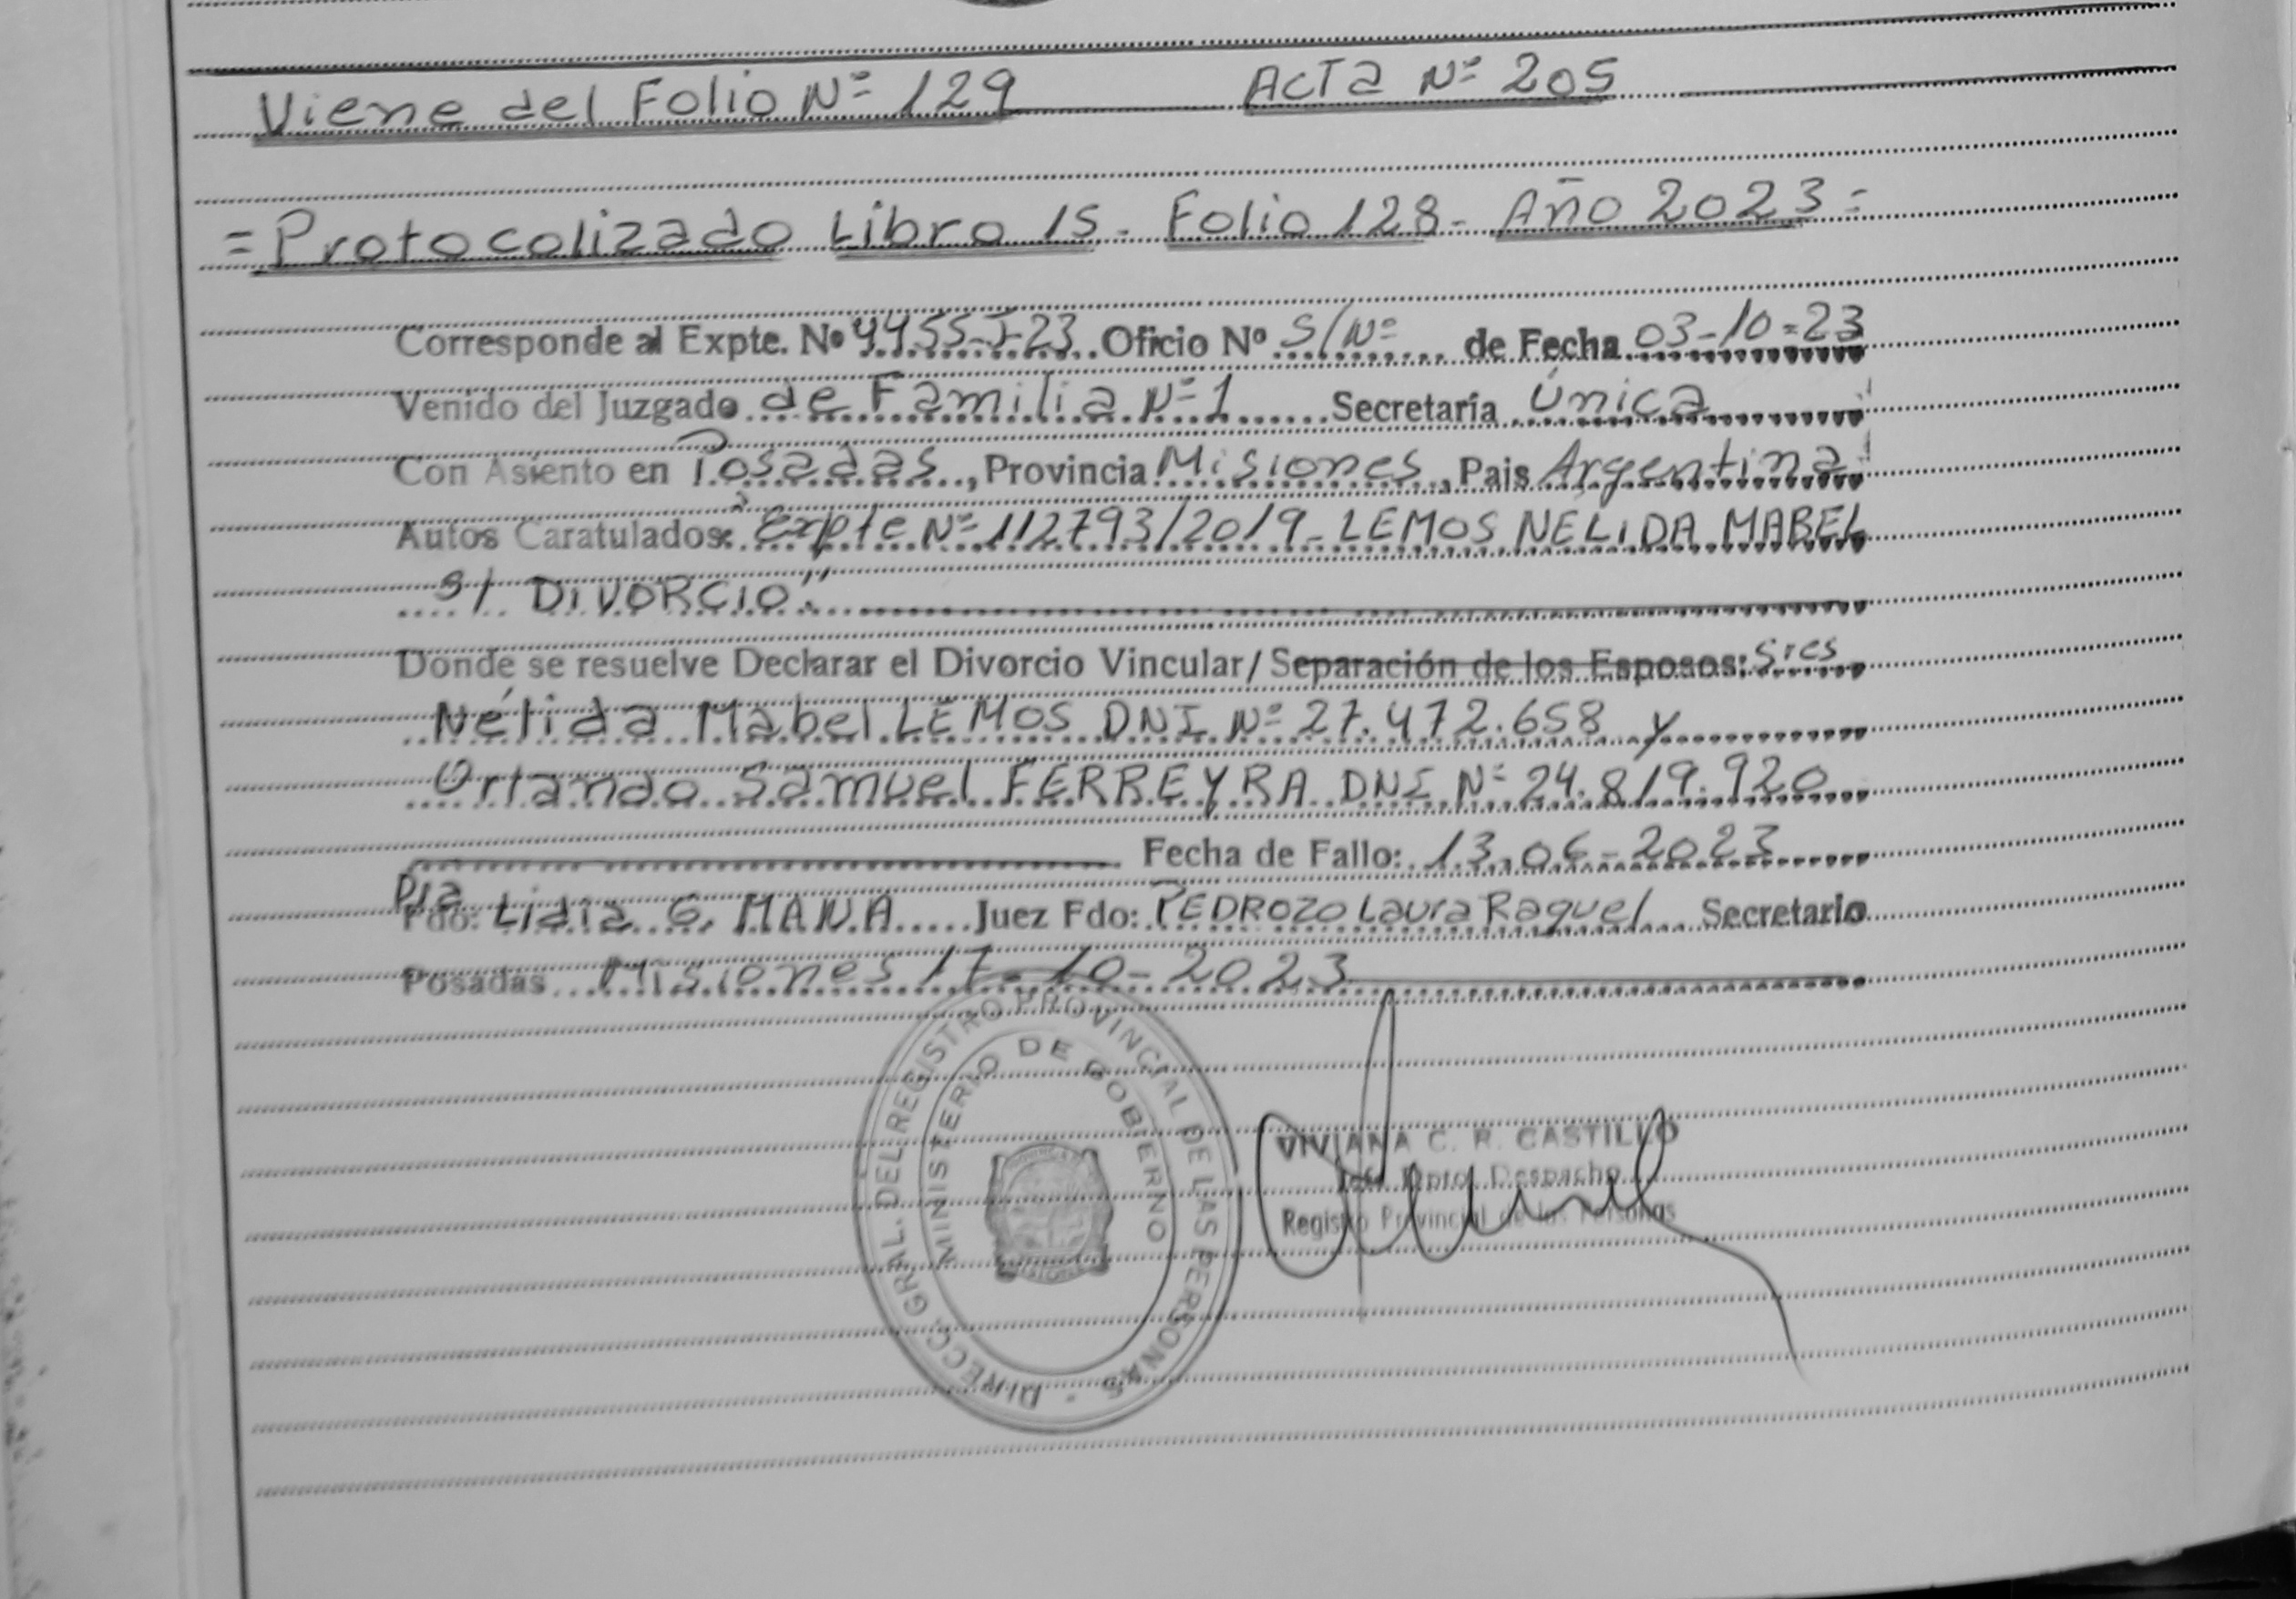 Viene del Folio Nº 129 Acta Nº 205
= Protocolizado Libro 15 - Folio 128 - Año 2023 =
Corresponde al Expte. Nº 4455-J-23 Oficio Nº S/Nº de Fecha 03-10-23
Venido del Juzgado de Familia Nº 1 Secretaría Única
Con Asiento en Posadas, Provincia Misiones, Pais Argentina
Autos Caratulados: "Expte Nº 112793/2019 - LEMOS NELIDA MABEL
S/ DIVORCIO"
Donde se resuelve Declarar el Divorcio Vincular/Separación de los Esposos: Sres
Nélida Mabel LEMOS DNI Nº 27.472.658 y
Orlando Samuel FERREYRA DNI Nº 24.819.920
Fecha de Fallo: 13-06-2023
Dra
Fdo: Lidia G. MANA Juez Fdo: PEDROZO Laura Raquel Secretario
Posadas Misiones 17-10-2023
DIRECC. GRAL. DEL REGISTRO PROVINCIAL DE LAS PERSONAS
MINISTERIO DE GOBIERNO
VIVIANA C. R. CASTILLO
Jefe Dpto. Despacho
Registro Provincial de las Personas